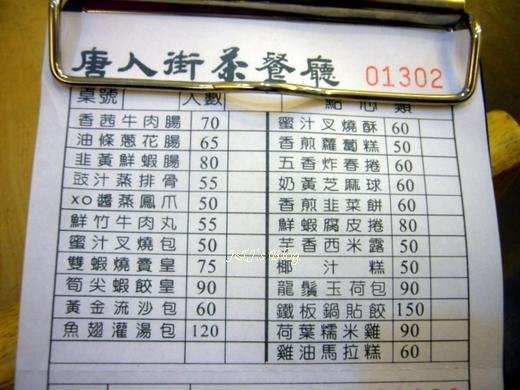 唐人街茶餐廳 01302
桌號 人數 點心類
香茜牛肉腸 70 蜜汁叉燒酥 60
油條蔥花腸 65 香煎蘿蔔糕 50
韭黃鮮蝦腸 80 五香炸春捲 60
豉汁蒸排骨 55 奶黃芝麻球 60
xo醬蒸鳳爪 50 香煎韭菜餅 60
鮮竹牛肉丸 55 鮮蝦腐皮捲 80
蜜汁叉燒包 50 芋香西米露 50
雙蝦燒賣皇 75 椰汁糕 50
筍尖蝦餃皇 90 龍鬚玉荷包 90
黃金流沙包 60 鐵板鍋貼餃 150
魚翅灌湯包 120 荷葉糯米雞 90
雞油馬拉糕 60
J&J's Blog